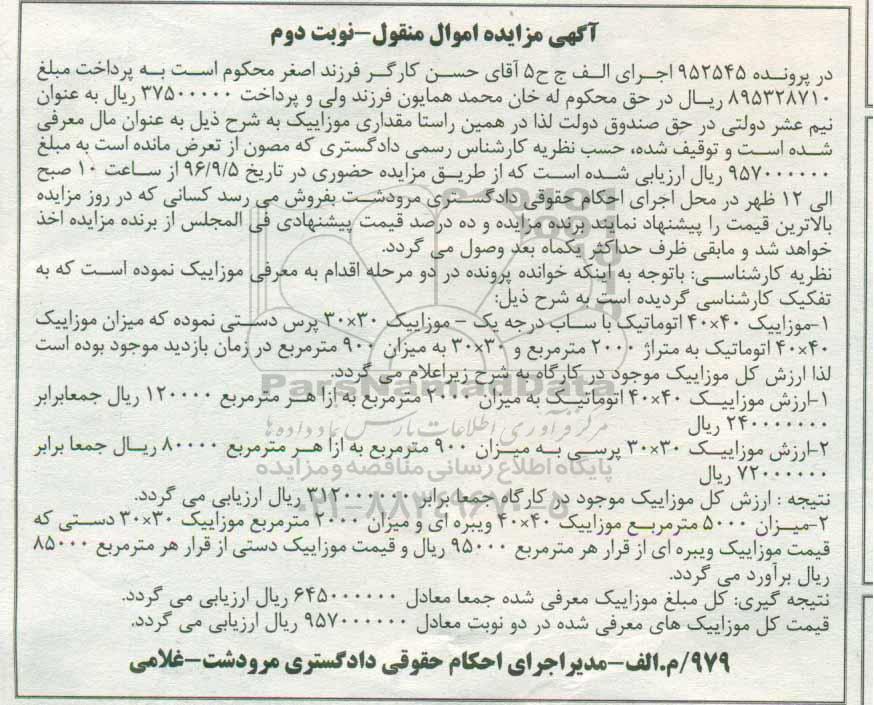 آگهی مزایده اموال منقول-نوبت دوم
در پرونده ۹۵۲۵۴۵ اجرای الف ج ح۵ آقای حسن کارگر فرزند اصغر محکوم است به پرداخت مبلغ
۸۹۵۳۲۸۷۱۰ ریال در حق محکوم له خان محمد همایون فرزند ولی و پرداخت ۳۷۵۰۰۰۰۰ ریال به عنوان
نیم عشر دولتی در حق صندوق دولت لذا در همین راستا مقداری موزاییک به شرح ذیل به عنوان مال معرفی
شده است و توقیف شده، حسب نظریه کارشناس رسمی دادگستری که مصون از تعرض مانده است به مبلغ
۹۵۷۰۰۰۰۰۰ ریال ارزیابی شده است که از طریق مزایده حضوری در تاریخ ۹۶/۹/۵ از ساعت ۱۰ صبح
الی ۱۲ ظهر در محل اجرای احکام حقوقی دادگستری مرودشت بفروش می رسد کسانی که در روز مزایده
بالاترین قیمت را پیشنهاد نمایند برنده مزایده و ده درصد قیمت پیشنهادی فی المجلس از برنده مزایده اخذ
خواهد شد و مابقی ظرف حداکثر یکماه بعد وصول می گردد.
نظریه کارشناسی: باتوجه به اینکه خوانده پرونده در دو مرحله اقدام به معرفی موزاییک نموده است که به
تفکیک کارشناسی گردیده است به شرح ذیل:
۱-موزاییک ۴۰×۴۰ اتوماتیک با ساب درجه یک - موزاییک ۳۰×۳۰ پرس دستی نموده که میزان موزاییک
۴۰×۴۰ اتوماتیک به متراژ ۲۰۰۰ مترمربع و ۳۰×۳۰ به میزان ۹۰۰ مترمربع در زمان بازدید موجود بوده است
لذا ارزش کل موزاییک موجود در کارگاه به شرح زیراعلام می گردد.
۱-ارزش موزاییک ۴۰×۴۰ اتوماتیک به میزان ۲۰۰۰ مترمربع به ازا هر مترمربع ۱۲۰۰۰۰ ریال جمعابرابر
۲۴۰۰۰۰۰۰۰ ریال
۲-ارزش موزاییک ۳۰×۳۰ پرسی به میزان ۹۰۰ مترمربع به ازا هر مترمربع ۸۰۰۰۰ ریال جمعا برابر
۷۲۰۰۰۰۰۰ ریال
نتیجه : ارزش کل موزاییک موجود در کارگاه جمعا برابر ۳۱۲۰۰۰۰۰۰ ریال ارزیابی می گردد.
۲-میزان ۵۰۰۰ مترمربع موزاییک ۴۰×۴۰ ویبره ای و میزان ۲۰۰۰ مترمربع موزاییک ۳۰×۳۰ دستی که
قیمت موزاییک ویبره ای از قرار هر مترمربع ۹۵۰۰۰ ریال و قیمت موزاییک دستی از قرار هر مترمربع ۸۵۰۰۰
ریال برآورد می گردد.
نتیجه گیری: کل مبلغ موزاییک معرفی شده جمعا معادل ۶۴۵۰۰۰۰۰۰ ریال ارزیابی می گردد.
قیمت کل موزاییک های معرفی شده در دو نوبت معادل ۹۵۷۰۰۰۰۰۰ ریال ارزیابی می گردد.
۹۷۹/م.الف-مدیراجرای احکام حقوقی دادگستری مرودشت-غلامی
ParsNamadData
مرکز فرآوری اطلاعات پارس نماد داده ها
پایگاه اطلاع رسانی مناقصه و مزایده
۰۲۱-۸۸۳۴۹۶۷۰-۵